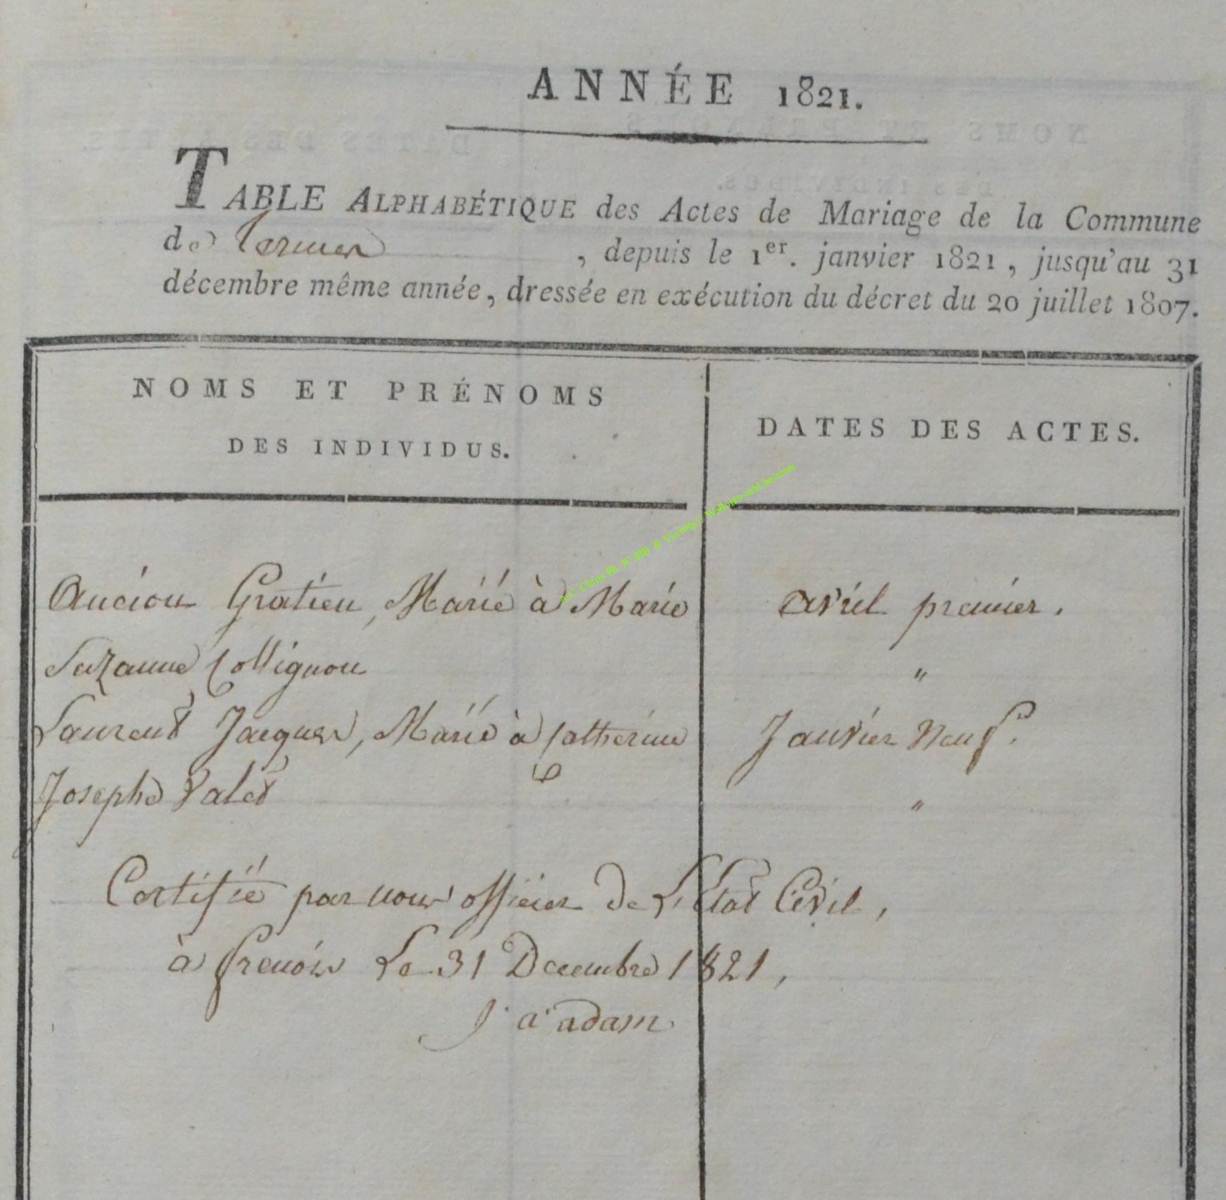 ANNÉE 1821.
TABLE ALPHABÉTIQUE des Actes de Mariage de la Commune
de , depuis le 1er. janvier 1821, jusqu'au 31
décembre même année, dressée en exécution du décret du 20 juillet 1807.
NOMS ET PRÉNOMS
DES INDIVIDUS.
DATES DES ACTES.
Gratien, Marié à Marie avril premier.
Suzanne Collignon "
Laurent Jacques, Marié à Catherine Janvier Neuf.
Josephe Valet "
Certifié par nous officier de L'Etat Civil,
à frenois Le 31 Decembre 1821,
J. a. adam